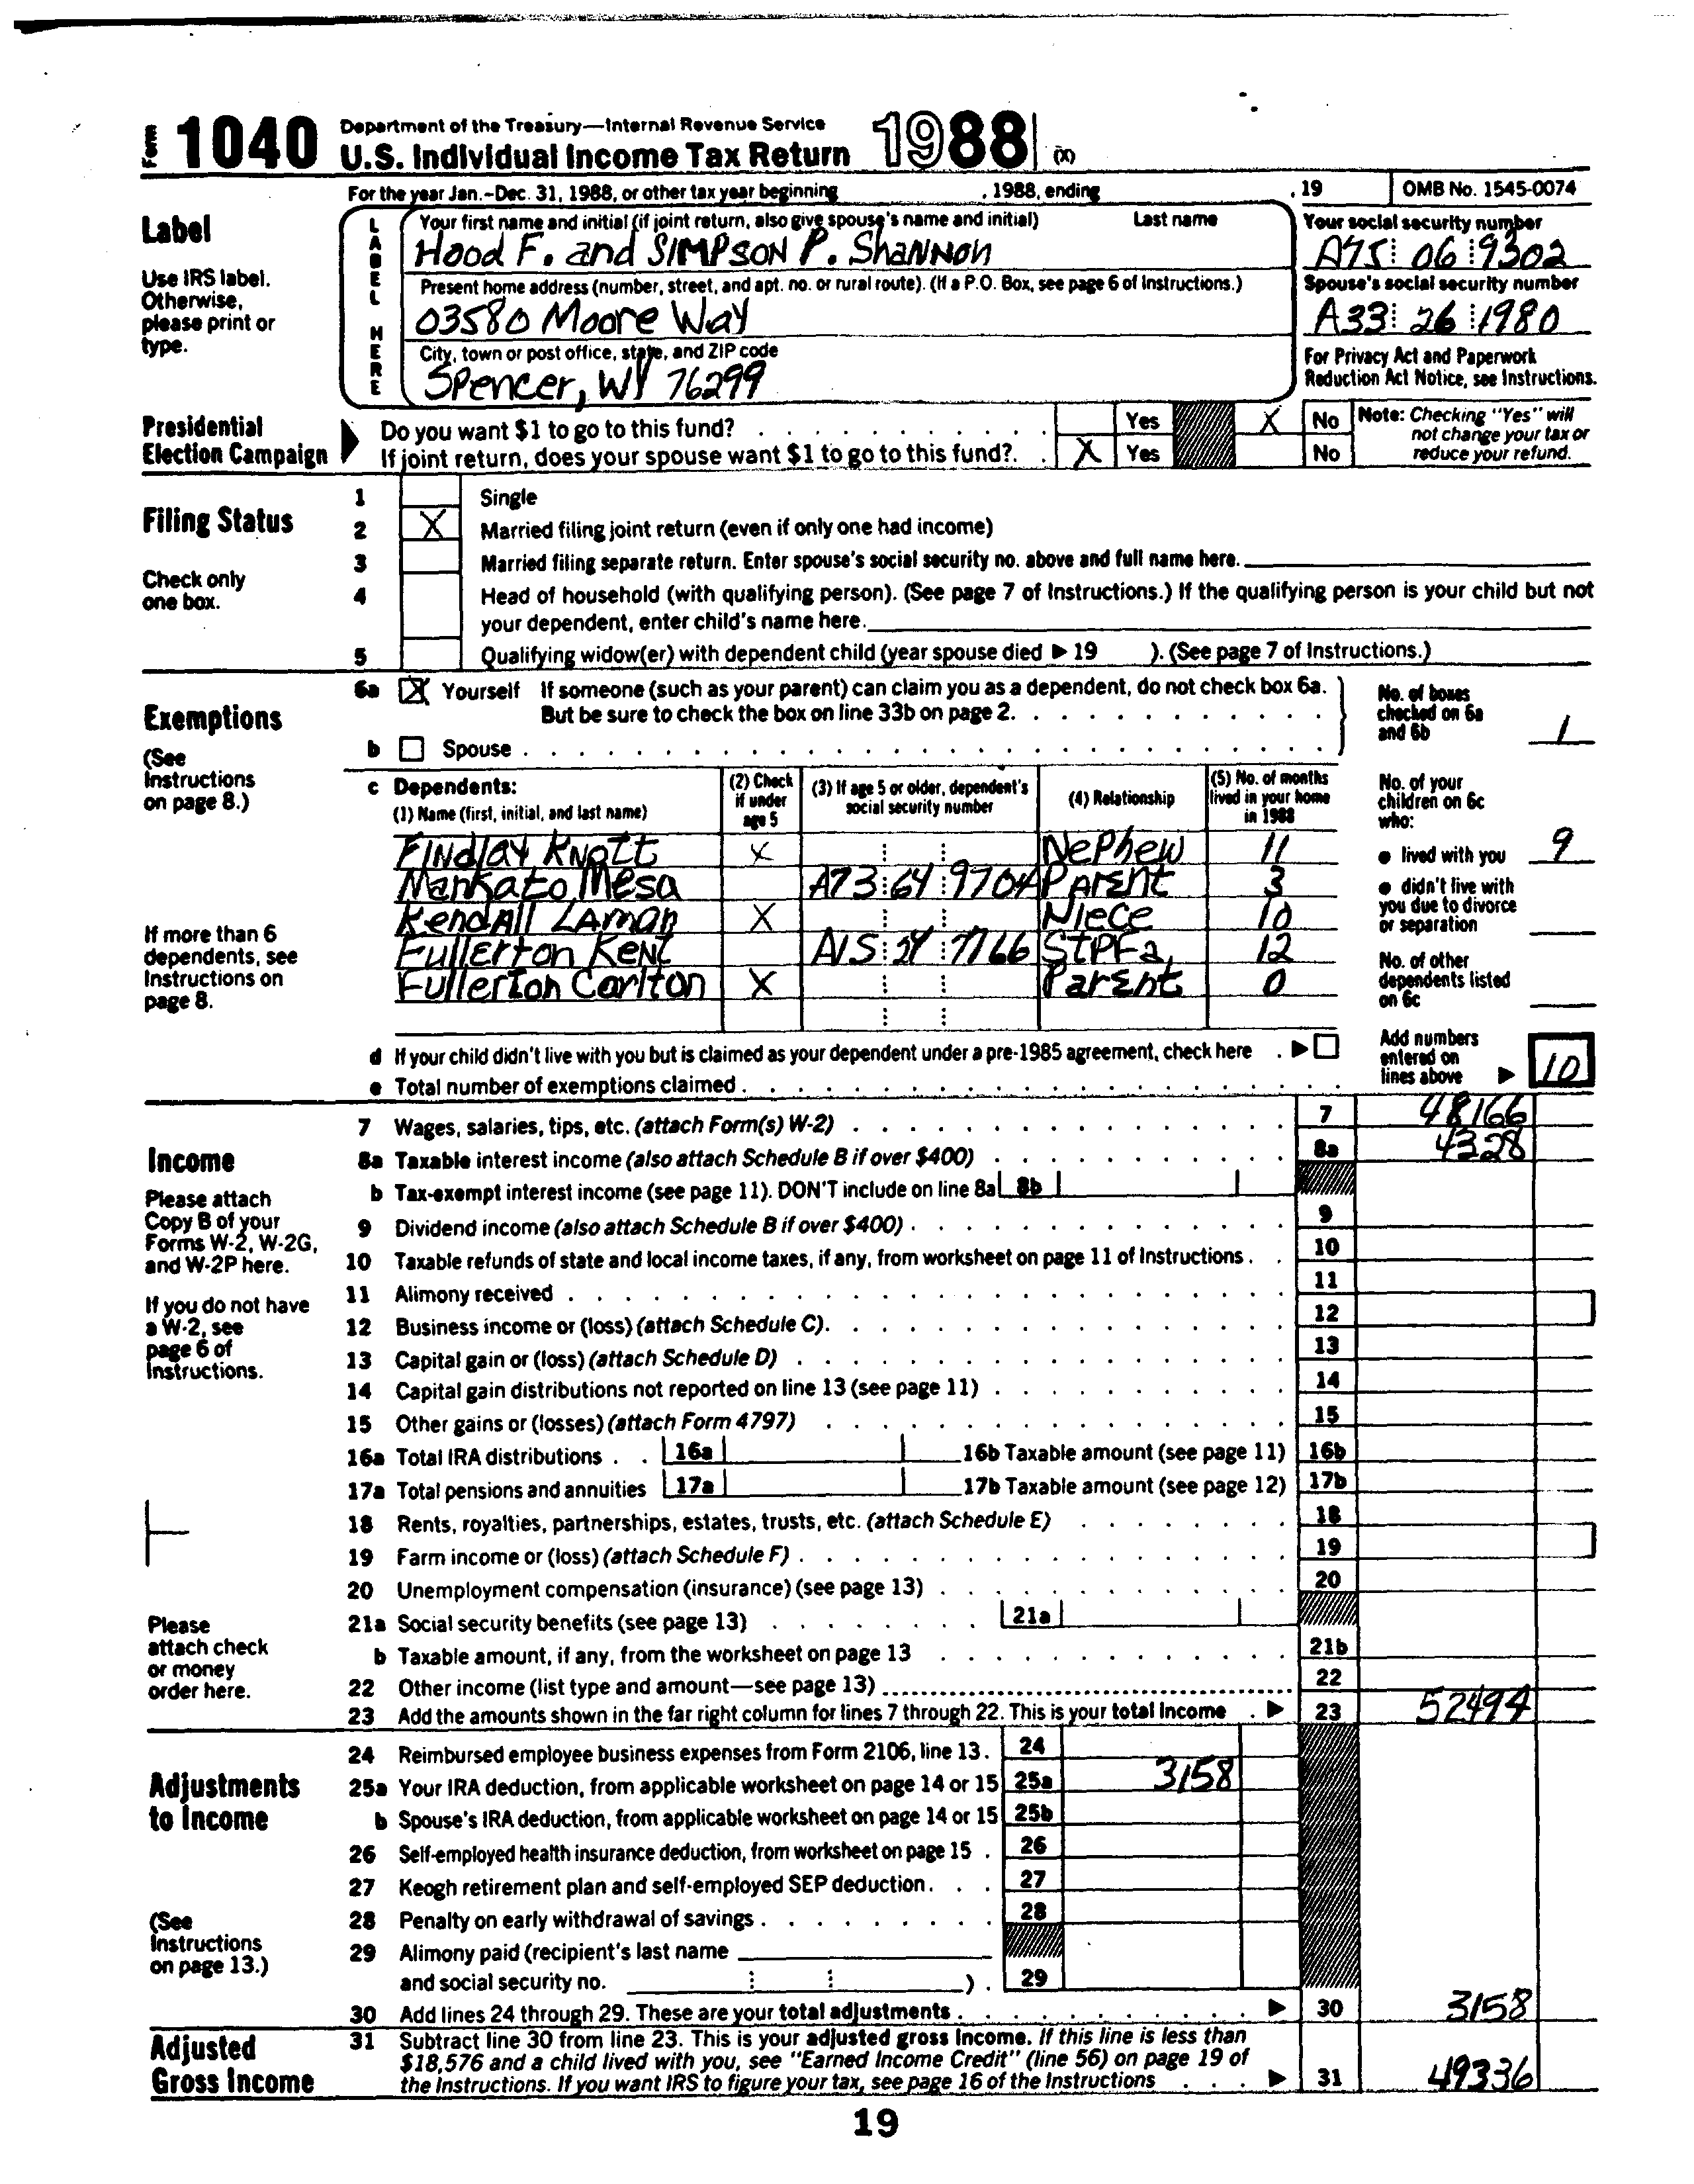 Form 1040 Department of the Treasury—Internal Revenue Service
U.S. Individual Income Tax Return 1988 (X)
For the year Jan.-Dec. 31, 1988, or other tax year beginning , 1988, ending , 19 OMB No. 1545-0074
Label
Use IRS label.
Otherwise,
please print or
type.
LABEL HERE
Your first name and initial (if joint return, also give spouse's name and initial) Last name
Hood F. and SIMPSON P. ShaNNon
Present home address (number, street, and apt. no. or rural route). (If a P.O. Box, see page 6 of Instructions.)
03580 Moore Way
City, town or post office, state, and ZIP code
Spencer, WY 76299
Your social security number
A75 06 9302
Spouse's social security number
A33 26 1980
For Privacy Act and Paperwork
Reduction Act Notice, see Instructions.
Presidential
Election Campaign
Do you want $1 to go to this fund? Yes X No
If joint return, does your spouse want $1 to go to this fund? X Yes No
Note: Checking "Yes" will
not change your tax or
reduce your refund.
Filing Status
Check only
one box.
1 Single
2 X Married filing joint return (even if only one had income)
3 Married filing separate return. Enter spouse's social security no. above and full name here.
4 Head of household (with qualifying person). (See page 7 of Instructions.) If the qualifying person is your child but not
your dependent, enter child's name here.
5 Qualifying widow(er) with dependent child (year spouse died ▶ 19 ). (See page 7 of Instructions.)
Exemptions
(See
Instructions
on page 8.)
If more than 6
dependents, see
Instructions on
page 8.
6a X Yourself If someone (such as your parent) can claim you as a dependent, do not check box 6a.
But be sure to check the box on line 33b on page 2.
b Spouse
No. of boxes
checked on 6a
and 6b 1
c Dependents:
(1) Name (first, initial, and last name)
(2) Check
if under
age 5
(3) If age 5 or older, dependent's
social security number
(4) Relationship
(5) No. of months
lived in your home
in 1988
Findlay Knott X Nephew 11
Mankato Mesa A73 64 9704 Parent 3
Kendall Laman X Niece 10
Fullerton Kent 7766 StPFa 12
Fullerton Carlton X Parent 0
No. of your
children on 6c
who:
● lived with you 9
● didn't live with
you due to divorce
or separation
No. of other
dependents listed
on 6c
d If your child didn't live with you but is claimed as your dependent under a pre-1985 agreement, check here ▶
e Total number of exemptions claimed
Add numbers
entered on
lines above ▶ 10
Income
Please attach
Copy B of your
Forms W-2, W-2G,
and W-2P here.
If you do not have
a W-2, see
page 6 of
Instructions.
Please
attach check
or money
order here.
7 Wages, salaries, tips, etc. (attach Form(s) W-2) 7 48166
8a Taxable interest income (also attach Schedule B if over $400) 8a 4328
b Tax-exempt interest income (see page 11). DON'T include on line 8a 8b
9 Dividend income (also attach Schedule B if over $400) 9
10 Taxable refunds of state and local income taxes, if any, from worksheet on page 11 of Instructions 10
11 Alimony received 11
12 Business income or (loss) (attach Schedule C) 12
13 Capital gain or (loss) (attach Schedule D) 13
14 Capital gain distributions not reported on line 13 (see page 11) 14
15 Other gains or (losses) (attach Form 4797) 15
16a Total IRA distributions 16a 16b Taxable amount (see page 11) 16b
17a Total pensions and annuities 17a 17b Taxable amount (see page 12) 17b
18 Rents, royalties, partnerships, estates, trusts, etc. (attach Schedule E) 18
19 Farm income or (loss) (attach Schedule F) 19
20 Unemployment compensation (insurance) (see page 13) 20
21a Social security benefits (see page 13) 21a
b Taxable amount, if any, from the worksheet on page 13 21b
22 Other income (list type and amount—see page 13) 22
23 Add the amounts shown in the far right column for lines 7 through 22. This is your total income ▶ 23 52494
Adjustments
to Income
(See
Instructions
on page 13.)
24 Reimbursed employee business expenses from Form 2106, line 13. 24
25a Your IRA deduction, from applicable worksheet on page 14 or 15 25a 3158
b Spouse's IRA deduction, from applicable worksheet on page 14 or 15 25b
26 Self-employed health insurance deduction, from worksheet on page 15 26
27 Keogh retirement plan and self-employed SEP deduction 27
28 Penalty on early withdrawal of savings 28
29 Alimony paid (recipient's last name
and social security no. ) 29
30 Add lines 24 through 29. These are your total adjustments ▶ 30 3158
Adjusted
Gross Income
31 Subtract line 30 from line 23. This is your adjusted gross income. If this line is less than
$18,576 and a child lived with you, see "Earned Income Credit" (line 56) on page 19 of
the Instructions. If you want IRS to figure your tax, see page 16 of the Instructions ▶ 31 49336
19